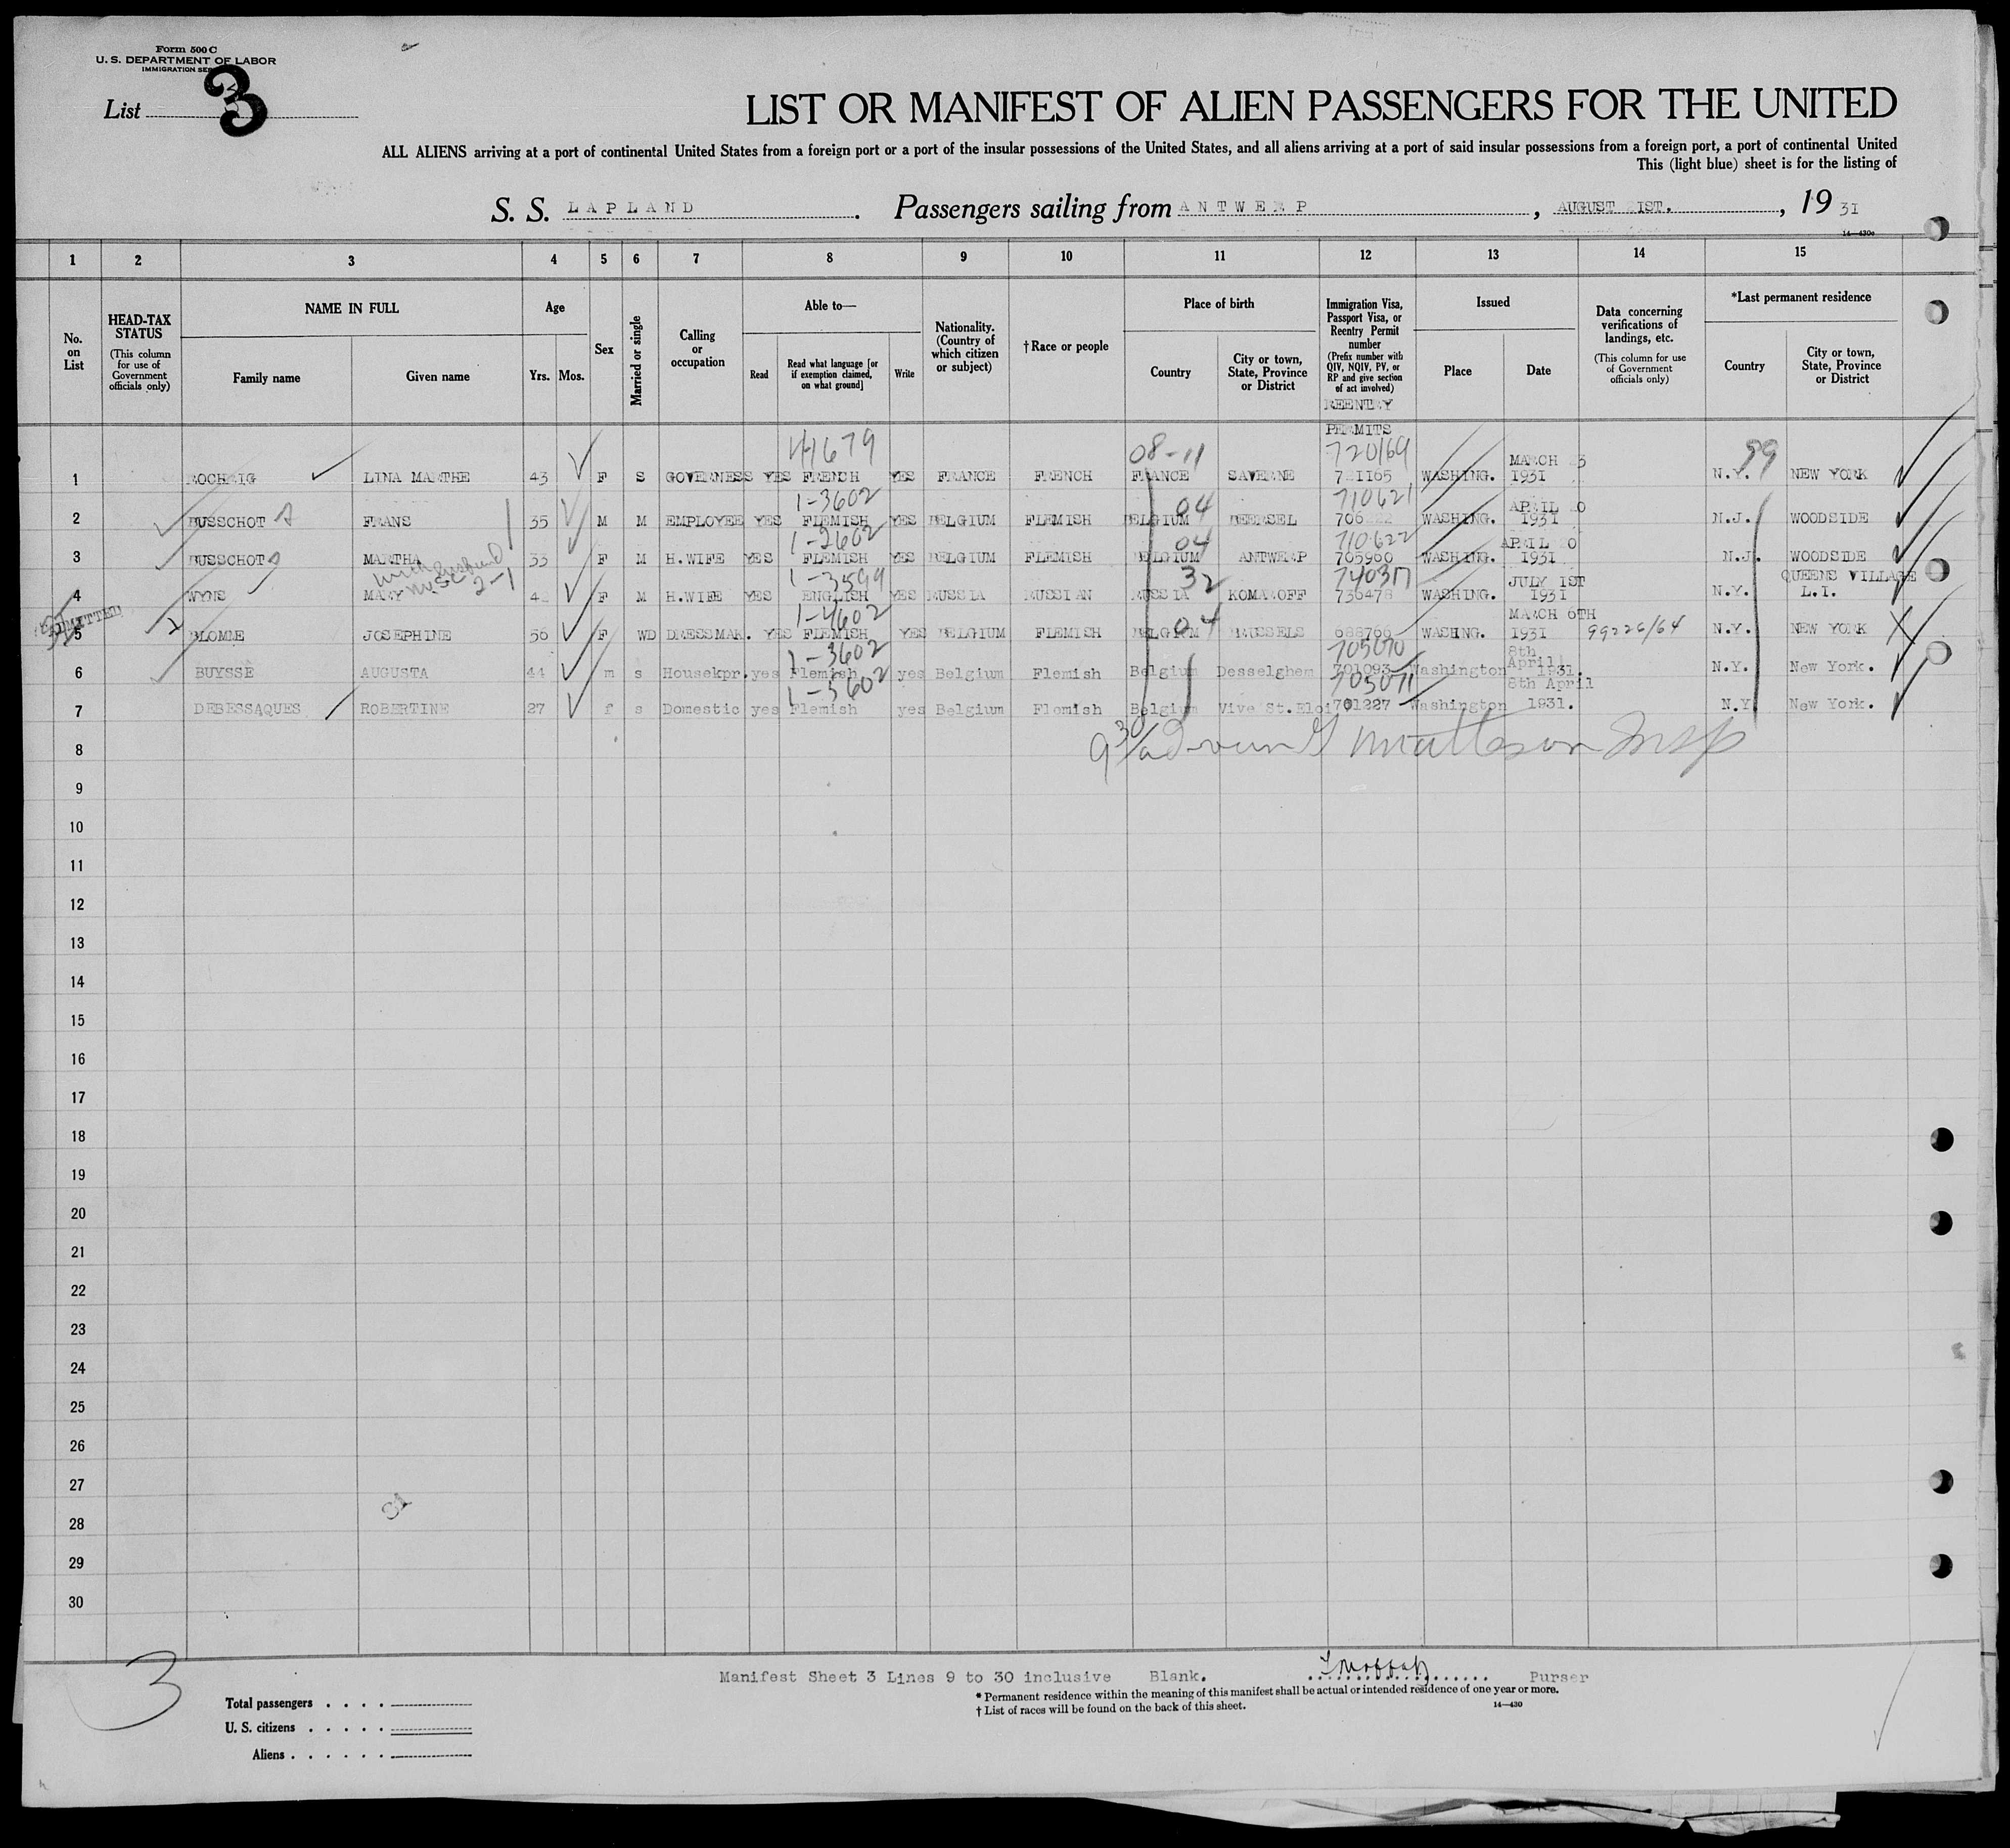 Form 500 C
U. S. DEPARTMENT OF LABOR
IMMIGRATION
List 3
LIST OR MANIFEST OF ALIEN PASSENGERS FOR THE UNITED
ALL ALIENS arriving at a port of continental United States from a foreign port or a port of the insular possessions of the United States, and all aliens arriving at a port of said insular possessions from a foreign port, a port of continental United
This (light blue) sheet is for the listing of
S. S. LAPLAND. Passengers sailing from ANTWERP, AUGUST 21ST., 19 31
14—430c
1 2 3 4 5 6 7 8 9 10 11 12 13 14 15
No. on List
HEAD-TAX STATUS (This column for use of Government officials only)
NAME IN FULL Family name Given name
Age Yrs. Mos.
Sex
Married or single
Calling or occupation
Able to— Read Read what language [or if exemption claimed, on what ground] Write
Nationality. (Country of which citizen or subject)
†Race or people
Place of birth Country City or town, State, Province or District
Immigration Visa, Passport Visa, or Reentry Permit number (Prefix number with QIV, NQIV, PV, or RP and give section of act involved)
REENTRY PERMITS
Issued Place Date
Data concerning verifications of landings, etc. (This column for use of Government officials only)
*Last permanent residence Country City or town, State, Province or District
44679 08-11 720169 99
1 ROCHRIG LINA MARTHE 43 F S GOVERNESS YES FRENCH YES FRANCE FRENCH FRANCE SAVERNE 721165 WASHING. MARCH 23 1931 N.Y. NEW YORK
1-3602 04 710621
2 BUSSCHOT FRANS 35 M M EMPLOYEE YES FLEMISH YES BELGIUM FLEMISH BELGIUM BEERSEL 706 WASHING. APRIL 20 1931 N.J. WOODSIDE
1-2602 04 710622
3 BUSSCHOT MARTHA 33 F M H.WIFE YES FLEMISH YES BELGIUM FLEMISH BELGIUM ANTWERP 705960 WASHING. APRIL 20 1931 N.J. WOODSIDE
with husband 2-1 1-3599 32 740317
4 WYNS MARY F M H.WIFE YES ENGLISH YES RUSSIA RUSSIAN RUSSIA KOMAROFF 736478 WASHING. JULY 1ST 1931 N.Y. QUEENS VILLAGE L.I.
ADMITTED 1-4602 04
5 BLOMME JOSEPHINE 56 F WD DRESSMAK. YES FLEMISH YES BELGIUM FLEMISH BELGIUM BRUSSELS 688766 WASHNG. MARCH 6TH 1931 99226/64 N.Y. NEW YORK
1-3602 705070
6 BUYSSE AUGUSTA 44 m s Housekpr. yes Flemish yes Belgium Flemish Belgium Desselghem 701093 Washington 8th April 1931. N.Y. New York.
1-3602 705071
7 DEBESSAQUES ROBERTINE 27 f s Domestic yes Flemish yes Belgium Flemish Belgium Vive St.Eloi 701227 Washington 8th April 1931. N.Y. New York.
8
9
10
11
12
13
14
15
16
17
18
19
20
21
22
23
24
25
26
27
28
29
30
Manifest Sheet 3 Lines 9 to 30 inclusive Blank. Purser
3
Total passengers
U. S. citizens
Aliens
* Permanent residence within the meaning of this manifest shall be actual or intended residence of one year or more.
† List of races will be found on the back of this sheet.
14—430